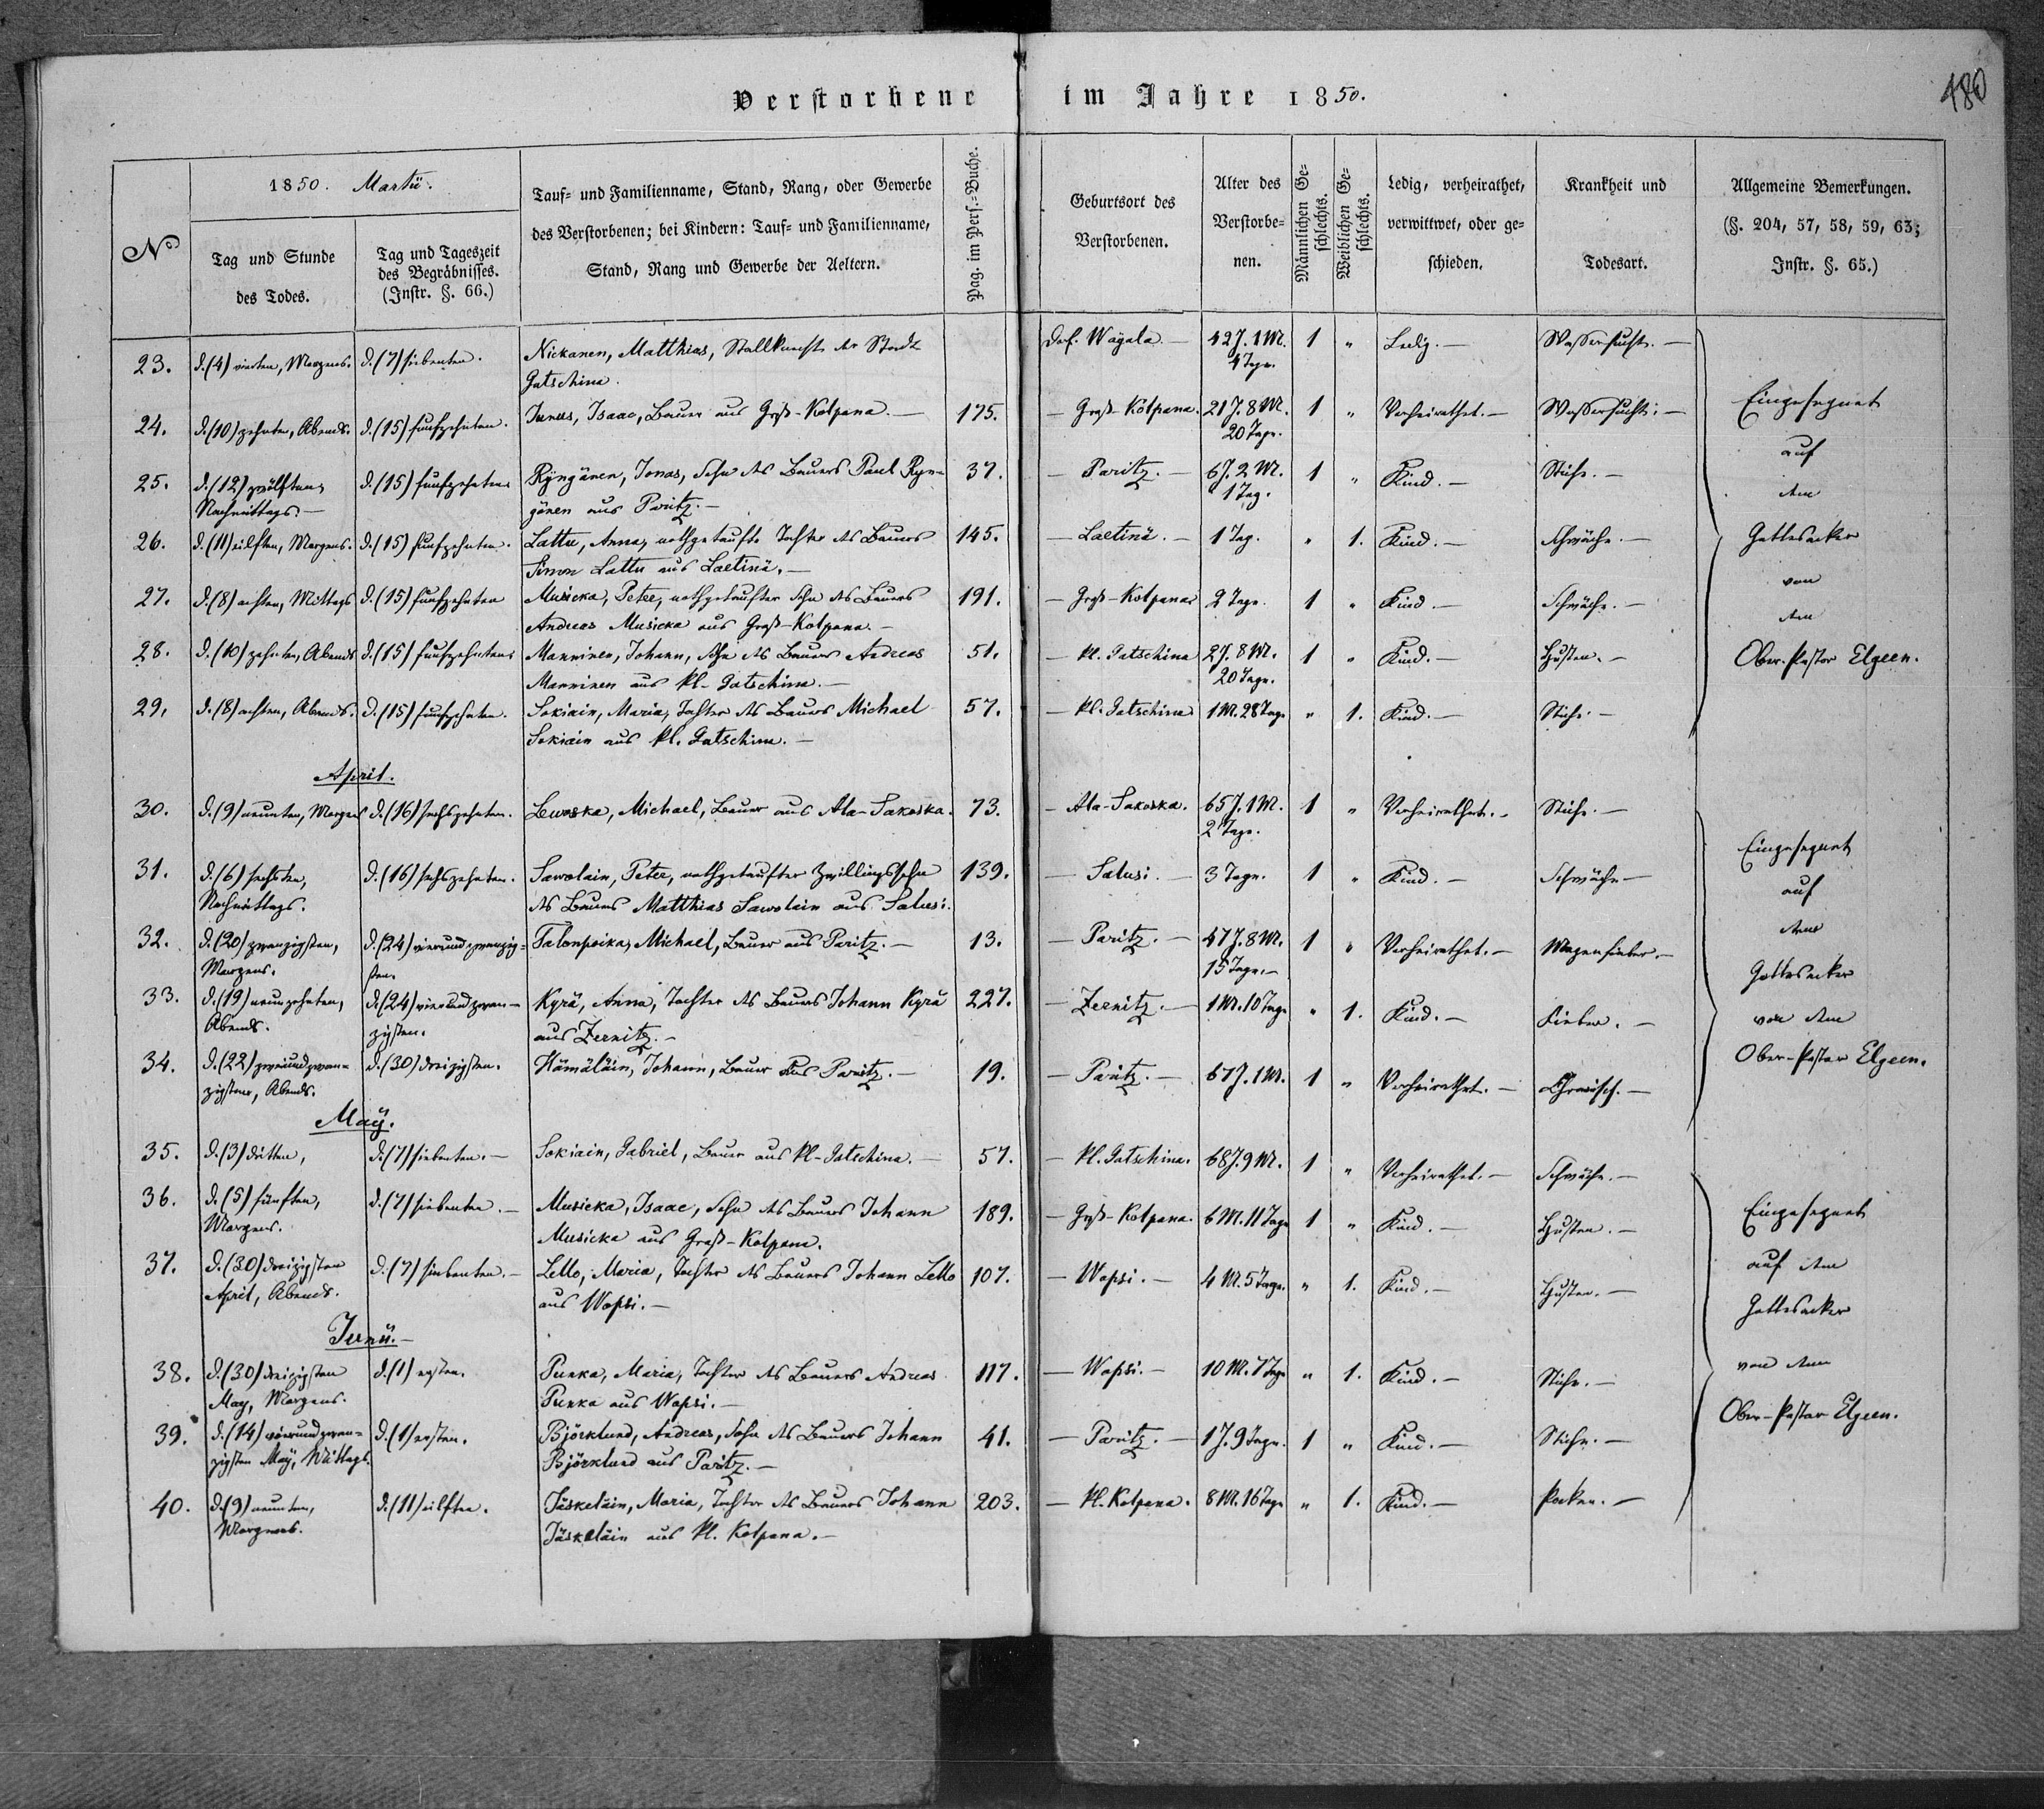 Verstorbene im Jahre 1850.
480
No
1850. Martii.
Tag und Stunde des Todes.
Tag und Tageszeit des Begräbnisses. (Instr. §. 66.)
Tauf- und Familienname, Stand, Rang, oder Gewerbe des Verstorbenen; bei Kindern: Tauf- und Familienname, Stand, Rang und Gewerbe der Aeltern.
Pag. im Pers.-Buche.
Geburtsort des Verstorbenen.
Alter des Verstorbenen.
Männlichen Geschlechts.
Weiblichen Geschlechts.
Ledig, verheirathet, verwittwet, oder geschieden.
Krankheit und Todesart.
Allgemeine Bemerkungen. (§. 204, 57, 58, 59, 63; Instr. §. 65.)
23. d. (4) vierten, Morgens. d. (7) siebenten. Nickanen, Matthias, Stallknecht der Stadt Gatschina. Dof. Wägala. 42 J. 1 M. 4 Tage. 1 " Ledig. Wassersucht.
24. d. (10) zehnten, Abends. d. (15) funfzehnten. Junus, Isaac, Bauer aus Groß-Kolpana. 175. Groß Kolpana. 21 J. 8 M. 20 Tage. 1 " Verheirathet. Wassersucht.
25. d. (12) zwölften, Nachmittags. d. (15) funfzehnten. Ryngänen, Jonas, Sohn des Bauers Paul Ryngänen aus Paritz. 37. Paritz. 6 J. 2 M. 1 Tag. 1 " Kind. Stiche.
26. d. (11) eilften, Morgens. d. (15) funfzehnten. Lattu, Anna, nothgetaufte Tochter des Bauers Simon Lattu aus Laetinä. 145. Laetinä. 1 Tag. " 1. Kind. Schwäche.
27. d. (8) achten, Mittags d. (15) funfzehnten Musicka, Peter, nothgetaufter Sohn des Bauers Andreas Musicka aus Groß-Kolpana. 191. Groß-Kolpana 2 Tage. 1 " Kind. Schwäche.
28. d. (10) zehnten, Abends d. (15) funfzehnten. Manninen, Johann, Sohn des Bauers Andreas Manninen aus Kl-Gatschina. 51. Kl. Gatschina 2 J. 8 M. 20 Tage. 1 " Kind. Husten.
29. d. (8) achten, Abends. d. (15) funfzehnten. Sokiain, Maria, Tochter des Bauers Michael Sokiain aus Kl. Gatschina. 57. Kl. Gatschina 1 M. 28 Tage " 1. Kind. Stiche.
Eingesegnet auf dem Gottesacker von dem Ober-Pastor Elgeen.
April.
30. d. (9) neunten, Morgens d. (16) sechszehnten. Michael, Bauer aus Ala-Sakoska. 73. Ala-Sakoska. 65 J. 1 M. 2 Tage. 1 " Verheirathet. Stiche.
31. d. (6) sechsten, Nachmittags. d. (16) sechszehnten. Sawolain, Peter, nothgetaufter Zwillingssohn des Bauers Matthias Sawolain aus Salusi. 139. Salusi. 3 Tage. 1 " Kind. Schwäche
32. d. (20) zwanzigsten, Morgens. d. (24) vierundzwanzigsten. Talonpoika, Michael, Bauer aus Paritz. 13. Paritz. 47 J. 8 M. 15 Tage. 1 " Verheirathet. Magenfieber.
33. d. (19) neunzehnten, Abends. d. (24) vierundzwanzigsten. Kyrä, Anna, Tochter des Bauers Johann Kyrä aus Zernitz. 227. Zernitz. 1 M. 10 Tage " 1. Kind. Fieber.
34. d. (22) zweiundzwanzigsten, Abends. d. (30) dreizigsten. Hämäläin, Johann, Bauer aus Paritz. 19. Paritz. 67 J. 1 M. 1 " Verheirathet. Chronisch.
Eingesegnet auf dem Gottesacker von dem Ober-Pastor Elgeen.
May.
35. d. (3) dritten, d. (7) siebenten. Sokiain, Gabriel, Bauer aus Kl-Gatschina. 57. Kl. Gatschina. 68 J. 9 M. 1 " Verheirathet. Schwäche.
36. d. (5) fünften, Morgens. d. (7) siebenten. Musicka, Isaac, Sohn des Bauers Johann Musicka aus Groß-Kolpana. 189. Groß-Kolpana. 6 M. 11 Tage 1 " Kind. Husten.
37. d. (30) dreizigsten April, Abends. d. (7) siebenten. Lello, Maria, Tochter des Bauers Johann Lello aus Wopsi. 107. Wopsi. 4 M. 5 Tage. " 1. Kind. Husten.
Junii.
38. d. (30) dreizigsten May, Morgens. d. (1) ersten. Punka, Maria, Tochter des Bauers Andreas Punka aus Wopsi. 117. Wopsi. 10 M. 7 Tage " 1. Kind. Stiche.
39. d. (14) vierundzwanzigsten May, Mittags. d. (1) ersten. Björklund, Andreas, Sohn des Bauers Johann Björklund aus Paritz. 41. Paritz. 1 J. 9 Tage. 1 " Kind. Stiche.
40. d. (9) neunten, Morgens. d. (11) eilften. Jäskeläin, Maria, Tochter des Bauers Johann Jäskeläin aus Kl. Kolpana. 203. Kl. Kolpana. 8 M. 16 Tage " 1. Kind. Pocken.
Eingesegnet auf dem Gottesacker von dem Ober-Pastor Elgeen.